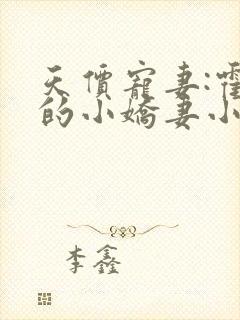 天價寵妻:霍
的小嬌妻小
李鑫